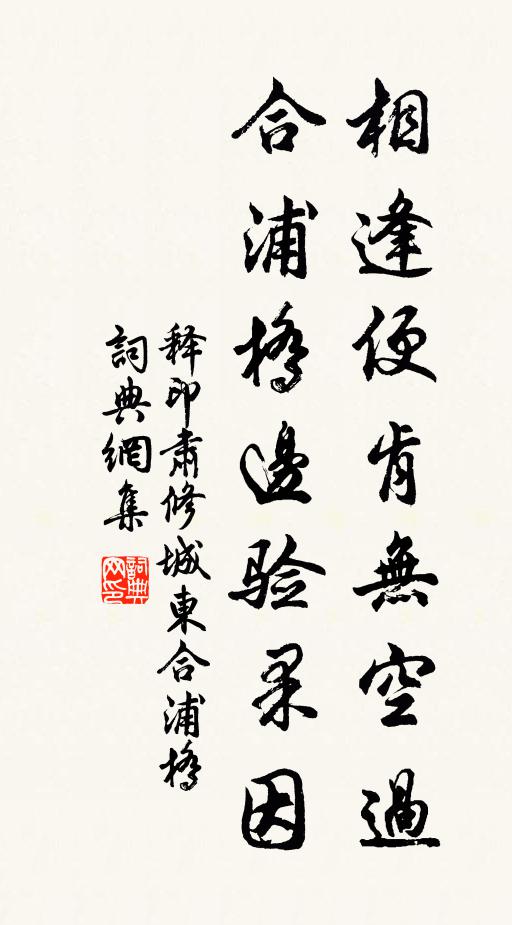 相逢便肯無空過
合浦橋邊验果因
释印肃修城東合浦橋
詞典網集
詞典网印